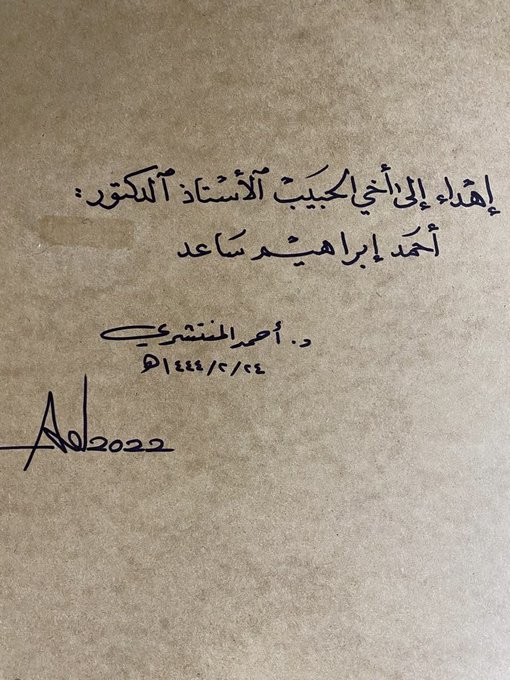 إهداء إلى أخي الحبيب الأستاذ الدكتور :
أحمد إبراهيم ساعد
د. أحمد المنتشري
١٤٤٤/٢/٢٤هـ
2022